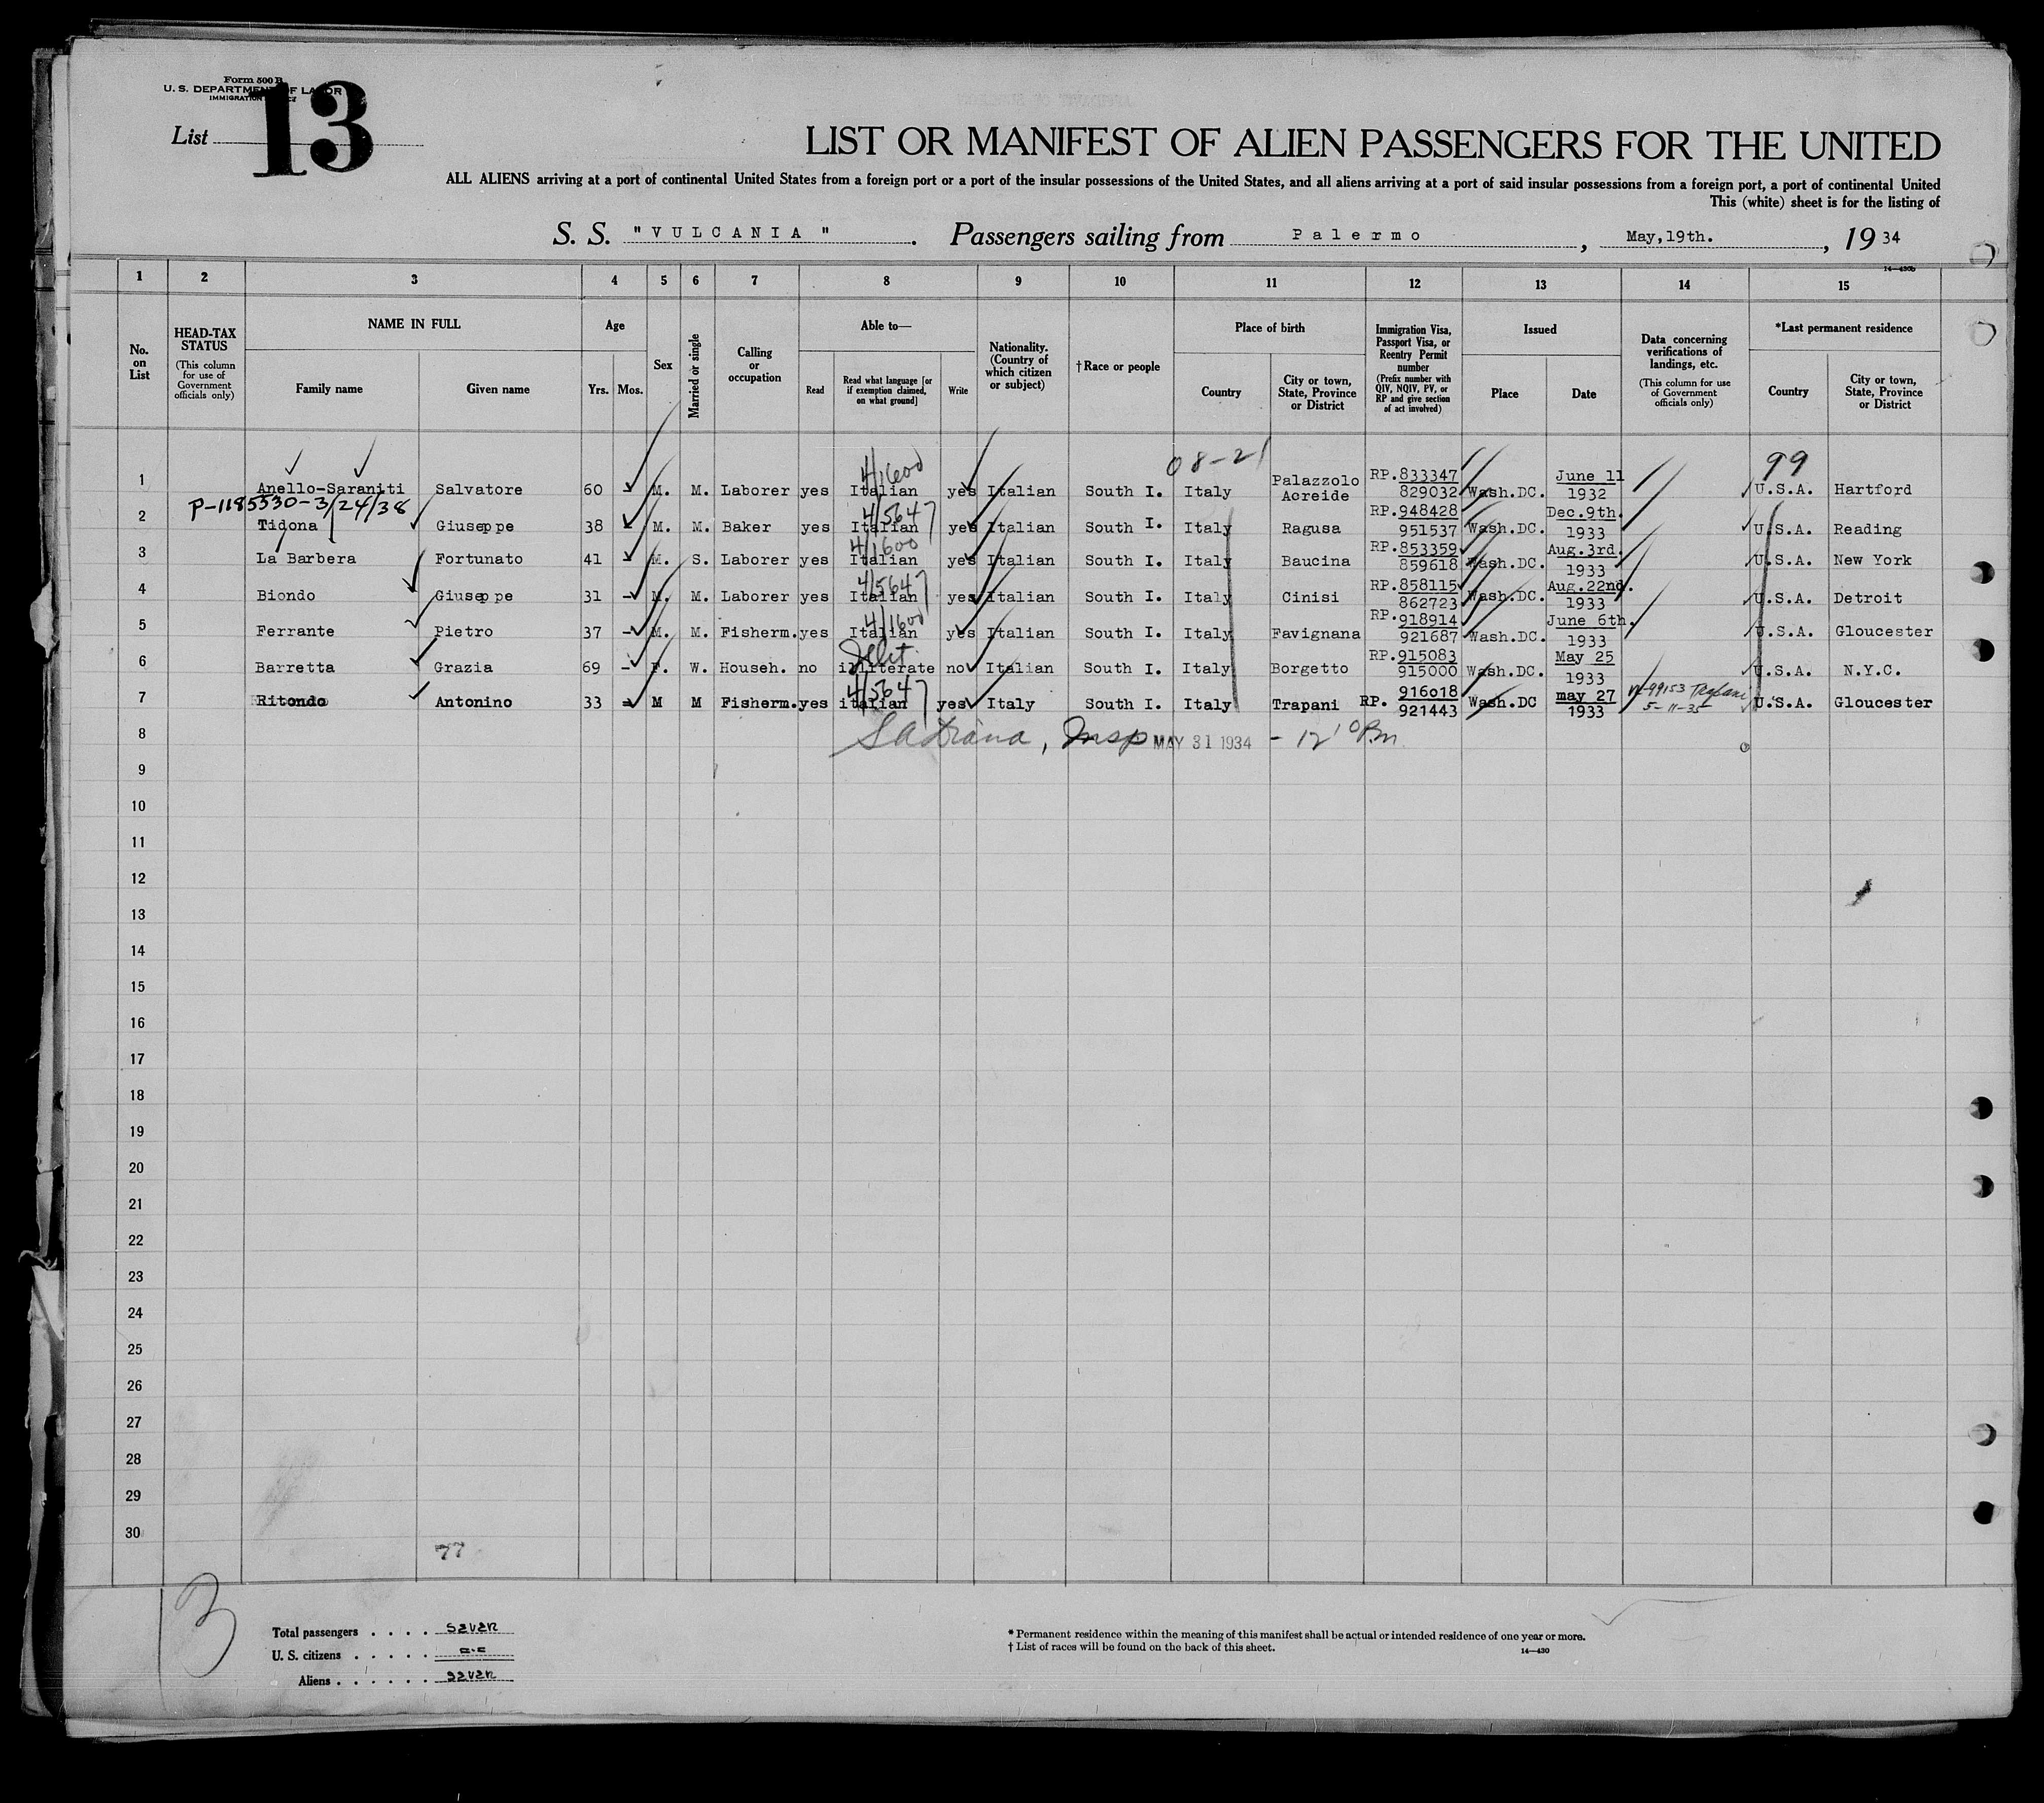 Form 500 B
U. S. DEPARTMENT OF LABOR
IMMIGRATION SERVICE
List 13
LIST OR MANIFEST OF ALIEN PASSENGERS FOR THE UNITED
ALL ALIENS arriving at a port of continental United States from a foreign port or a port of the insular possessions of the United States, and all aliens arriving at a port of said insular possessions from a foreign port, a port of continental United
This (white) sheet is for the listing of
S. S. "VULCANIA". Passengers sailing from Palermo, May,19th., 1934
14—430b
1 2 3 4 5 6 7 8 9 10 11 12 13 14 15
No. on List
HEAD-TAX STATUS (This column for use of Government officials only)
NAME IN FULL
Family name Given name
Age
Yrs. Mos.
Sex
Married or single
Calling or occupation
Able to—
Read
Read what language [or if exemption claimed, on what ground]
Write
Nationality. (Country of which citizen or subject)
† Race or people
Place of birth
Country
City or town, State, Province or District
Immigration Visa, Passport Visa, or Reentry Permit number (Prefix number with QIV, NQIV, PV, or RP and give section of act involved)
Issued
Place Date
Data concerning verifications of landings, etc. (This column for use of Government officials only)
*Last permanent residence
Country
City or town, State, Province or District
08-21 99
1 Anello-Saraniti Salvatore 60 - M. M. Laborer yes Italian 4/1600 yes Italian South I. Italy Palazzolo Acreide RP.833347 829032 Wash.DC. June 11 1932 U.S.A. Hartford
P-1185530-3/24/38
2 Tidona Giuseppe 38 - M. M. Baker yes Italian 4/5647 yes Italian South I. Italy Ragusa RP.948428 951537 Wash.DC. Dec.9th. 1933 U.S.A. Reading
3 La Barbera Fortunato 41 - M. S. Laborer yes Italian 4/1600 yes Italian South I. Italy Baucina RP.853359 859618 Wash.DC. Aug.3rd. 1933 U.S.A. New York
4 Biondo Giuseppe 31 - M. M. Laborer yes Italian 4/5647 yes Italian South I. Italy Cinisi RP.858115 862723 Wash.DC. Aug.22nd. 1933 U.S.A. Detroit
5 Ferrante Pietro 37 - M. M. Fisherm. yes Italian 4/1600 yes Italian South I. Italy Favignana RP.918914 921687 Wash.DC. June 6th. 1933 U.S.A. Gloucester
6 Barretta Grazia 69 - F. W. Househ. no illiterate no Italian South I. Italy Borgetto RP.915083 915000 Wash.DC. May 25 1933 U.S.A. N.Y.C.
7 Ritondo Antonino 33 - M M Fisherm. yes italian 4/5647 yes Italy South I. Italy Trapani RP. 916018 921443 Wash.DC may 27 1933 V-99153 Trapani 5-11-35 U.S.A. Gloucester
8 Insp MAY 31 1934 - 12 PM
9
10
11
12
13
14
15
16
17
18
19
20
21
22
23
24
25
26
27
28
29
30
77
3
Total passengers . . . . seven
U. S. citizens . . . . . --
Aliens . . . . . . seven
* Permanent residence within the meaning of this manifest shall be actual or intended residence of one year or more.
† List of races will be found on the back of this sheet.
14—430